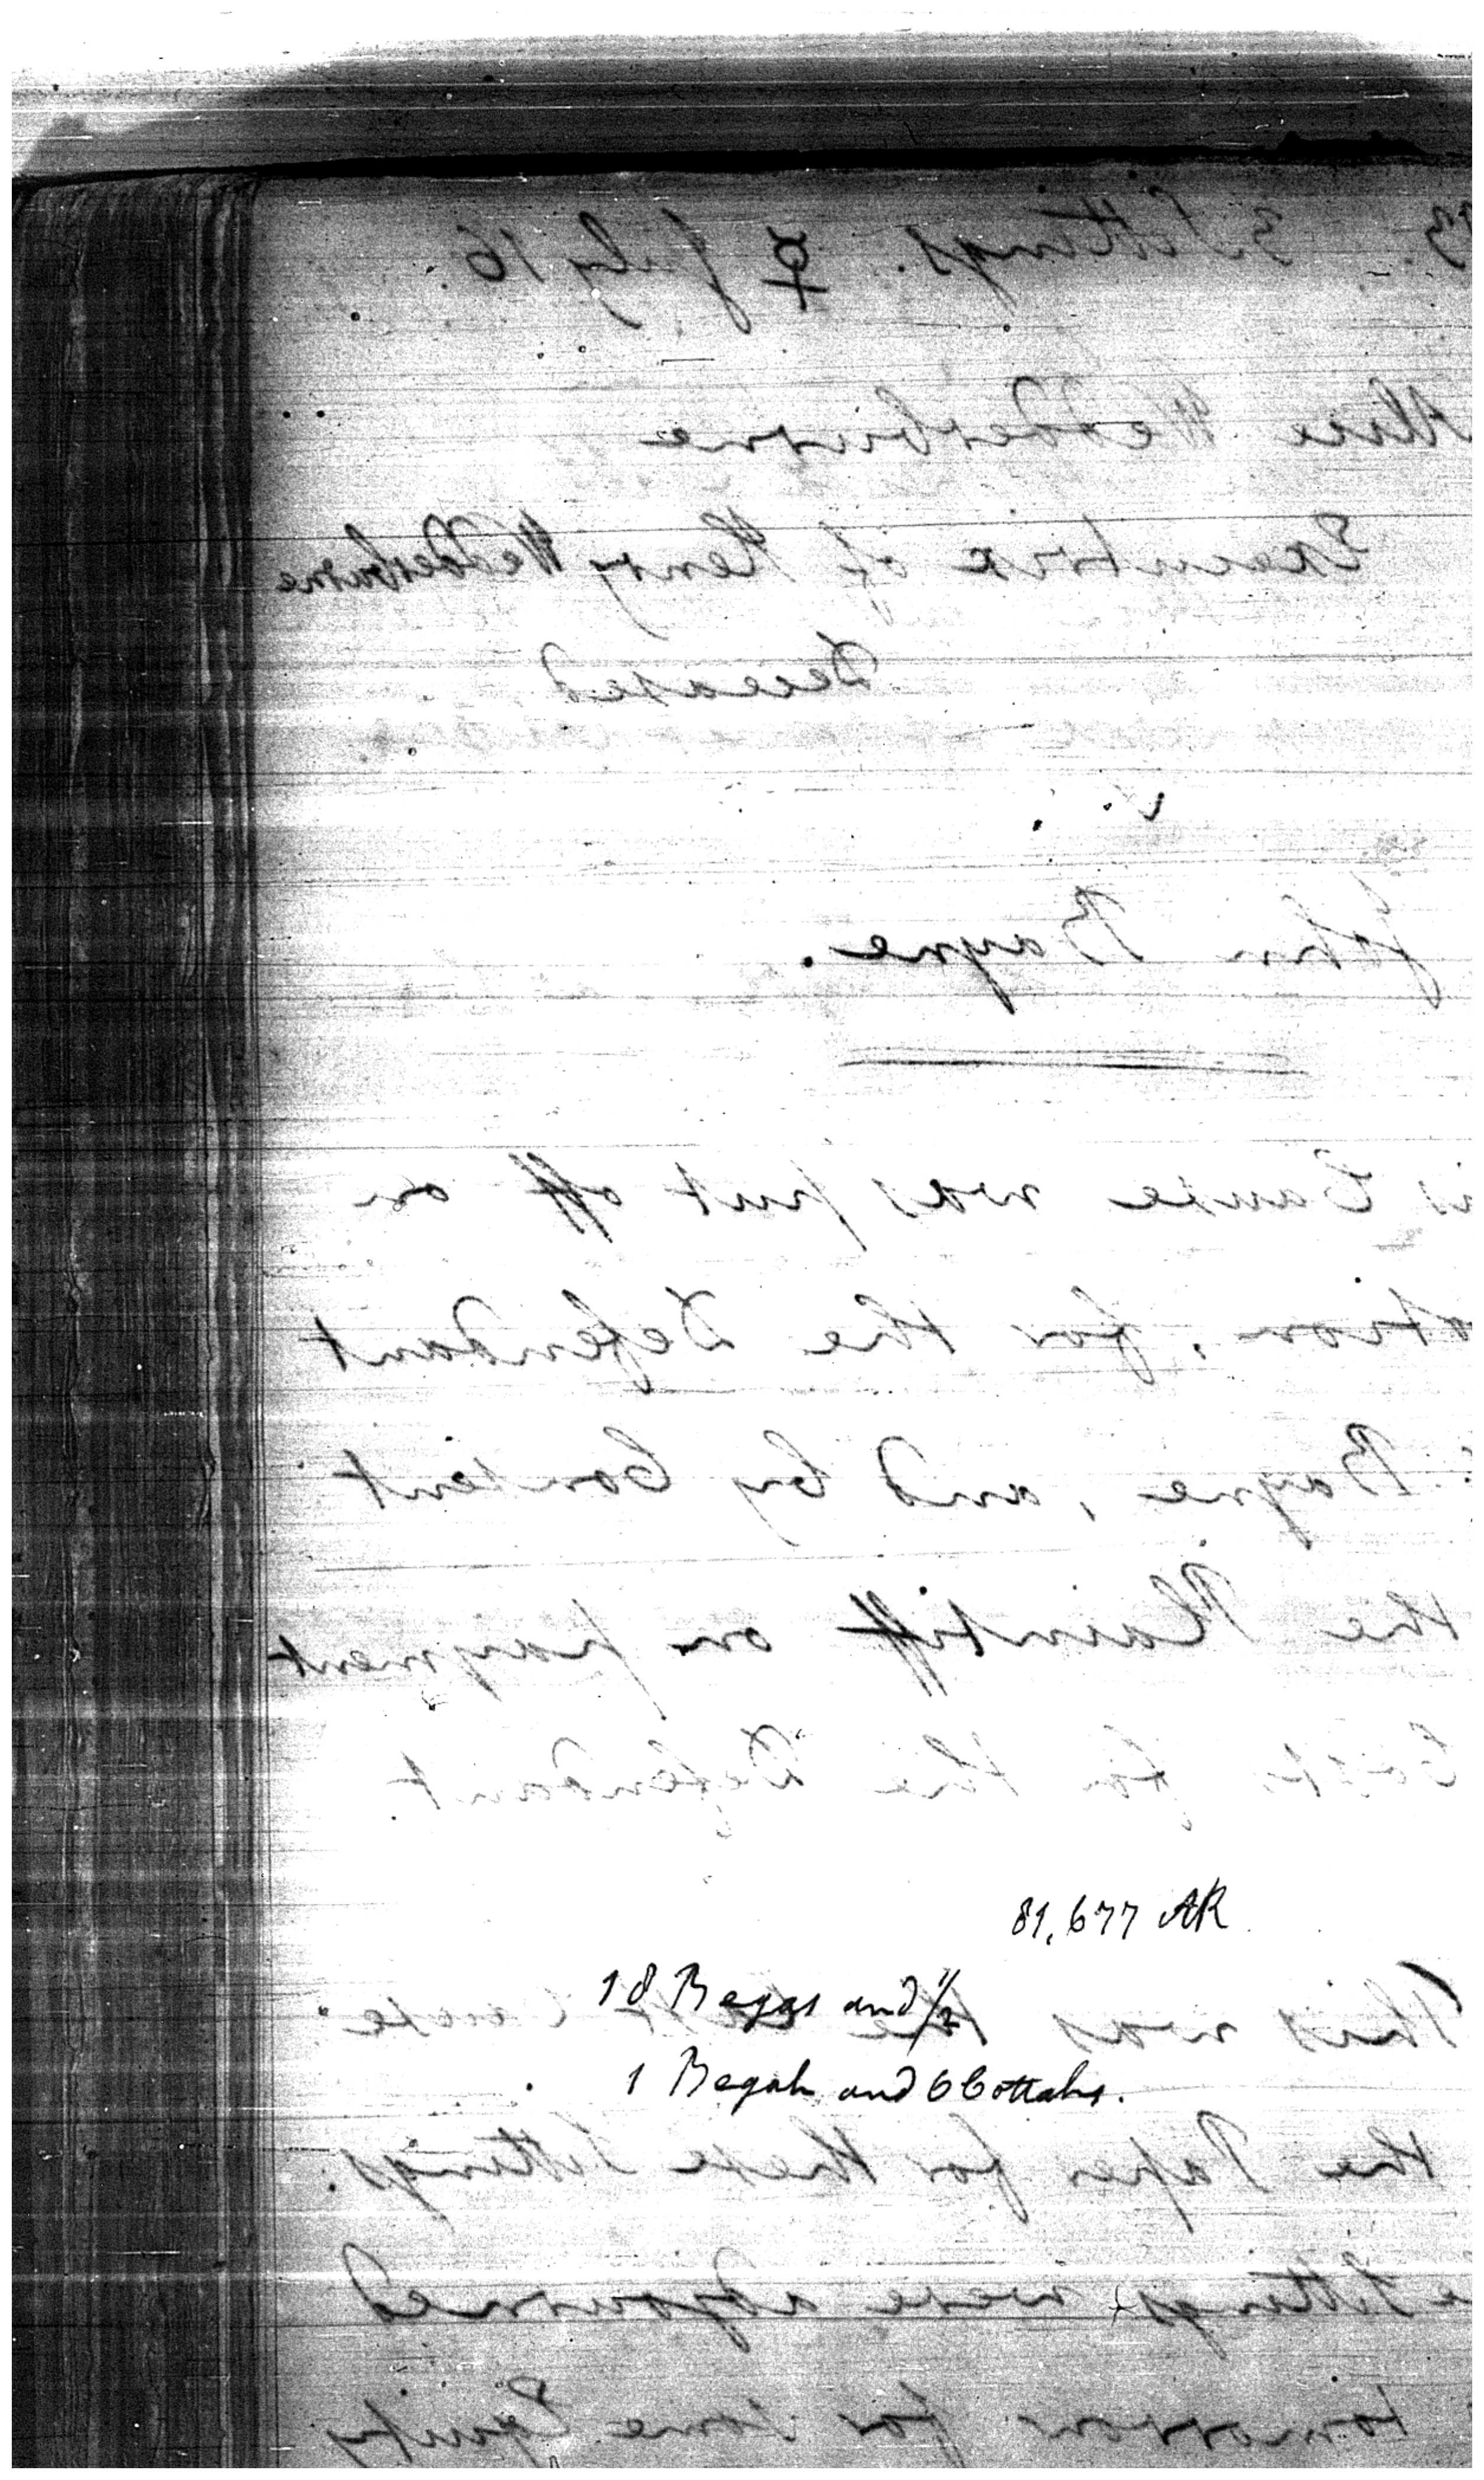 3 Sittings. ♀ July 16.
Alice Wedderburne
Executrix of Henry Wedderburne
Deceased
v.
John Bayne.
Cause was put off on
for the Defendant
Bayne, and by Consent
the Plaintiff on payment
Costs for the Defendant.
81,677 AR
18 Begas and 1/2
This was the last Cause
1 Begah and 6 Cottahs.
the Paper for these Sittings.
Sittings were adjourned
tomorrow for some Equity